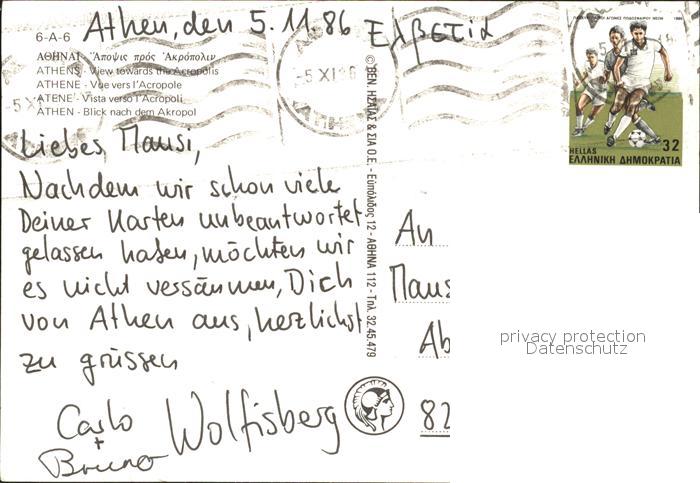 Athen, den 5.11.86
Ελβετία
6-A-6
ΑΘΗΝΑΙ Ἄποψις πρός Ἀκρόπολιν
ATHENS - View towards the Acropolis
ATHENE - Vue vers l'Acropole
ATENE - Vista verso l'Acropoli
ATHEN - Blick nach dem Akropol
-5 XI 86
Liebes Mausi,
Nachdem wir schon viele
Deiner Karten unbeantwortet
gelassen haben, möchten wir
es nicht versäumen, Dich
von Athen aus, herzlichst
zu grüssen
Carlo
+
Bruno
Wolfisberg
© ΒΕΝ. ΗΣΑΪΑΣ & ΣΙΑ Ο.Ε. - Ευπόλιδος 12 - ΑΘΗΝΑ 112 - Τηλ. 32.45.479
1986
32
HELLAS
ΕΛΛΗΝΙΚΗ ΔΗΜΟΚΡΑΤΙΑ
An
Maus
Ab
82
privacy protection
Datenschutz